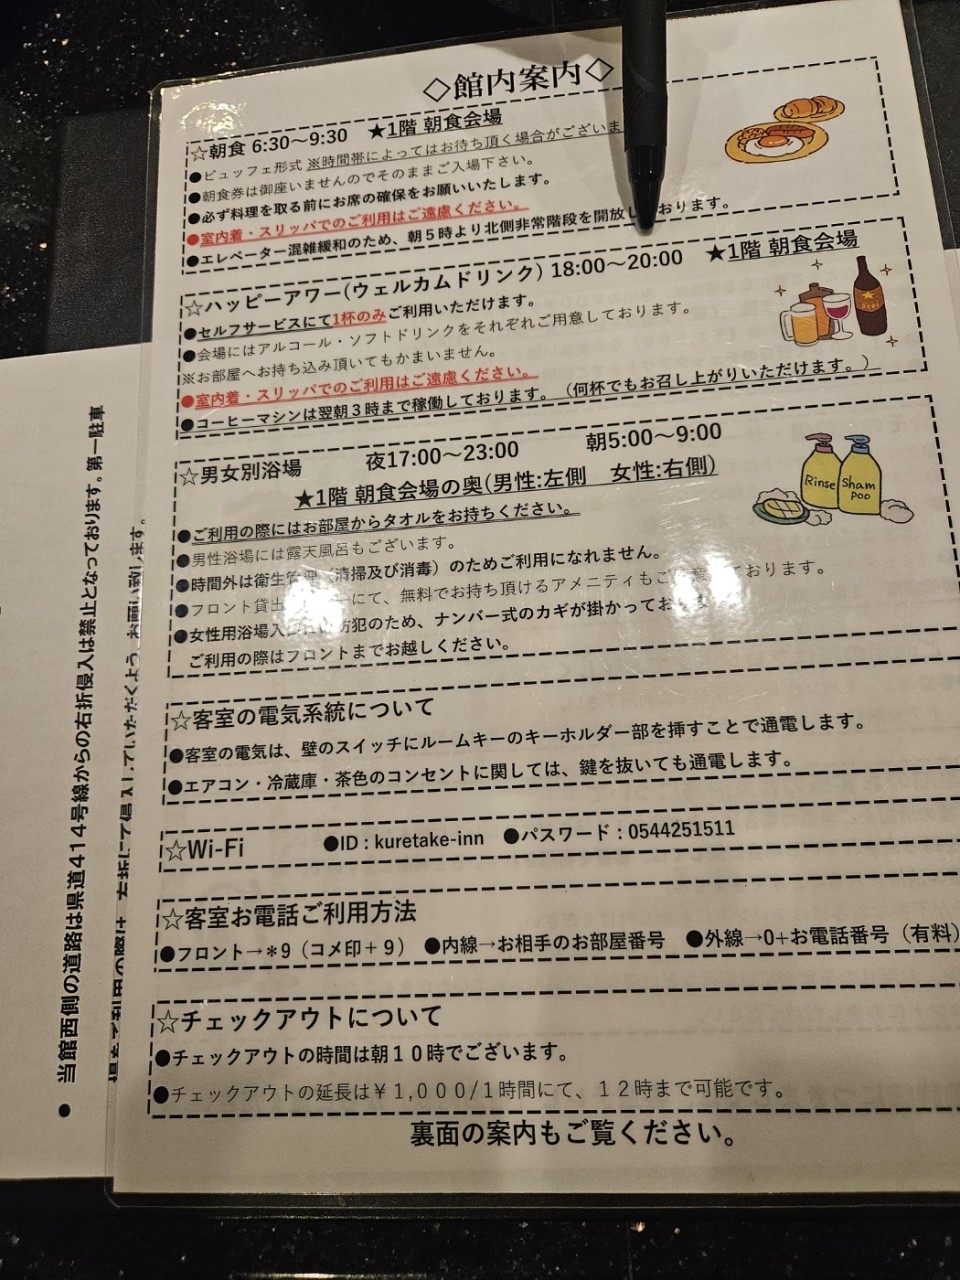 ◇館内案内◇
☆朝食 6:30～9:30 ★1階 朝食会場
●ビュッフェ形式 ※時間帯によってはお待ち頂く場合がございま
●朝食券は御座いませんのでそのままご入場下さい。
●必ず料理を取る前にお席の確保をお願いいたします。
●室内着・スリッパでのご利用はご遠慮ください。
●エレベーター混雑緩和のため、朝５時より北側非常階段を開放し おります。
☆ハッピーアワー(ウェルカムドリンク) 18:00～20:00 ★1階 朝食会場
●セルフサービスにて1杯のみご利用いただけます。
●会場にはアルコール・ソフトドリンクをそれぞれご用意しております。
※お部屋へお持ち込み頂いてもかまいません。
●室内着・スリッパでのご利用はご遠慮ください。
●コーヒーマシンは翌朝３時まで稼働しております。（何杯でもお召し上がりいただけます。）
☆男女別浴場 夜17:00～23:00 朝5:00～9:00
★1階 朝食会場の奥(男性:左側 女性:右側)
Rinse
Sham
poo
●ご利用の際にはお部屋からタオルをお持ちください。
●男性浴場には露天風呂もございます。
●時間外は衛生管理（清掃及び消毒）のためご利用になれません。
●フロント貸出 にて、無料でお持ち頂けるアメニティもご おります。
●女性用浴場入 防犯のため、ナンバー式のカギが掛かってお
ご利用の際はフロントまでお越しください。
☆客室の電気系統について
●客室の電気は、壁のスイッチにルームキーのキーホルダー部を挿すことで通電します。
●エアコン・冷蔵庫・茶色のコンセントに関しては、鍵を抜いても通電します。
☆Wi-Fi ●ID : kuretake-inn ●パスワード : 0544251511
☆客室お電話ご利用方法
●フロント→＊9（コメ印＋９） ●内線→お相手のお部屋番号 ●外線→0+お電話番号（有料）
☆チェックアウトについて
●チェックアウトの時間は朝１０時でございます。
●チェックアウトの延長は￥１,０００/１時間にて、１２時まで可能です。
裏面の案内もご覧ください。
● 当館西側の道路は県道４１４号線からの右折侵入は禁止となっております。第一駐車